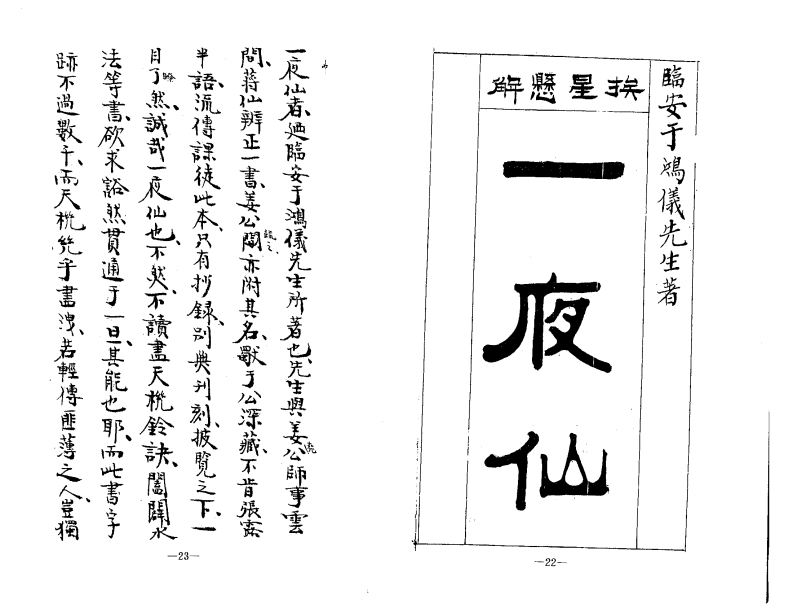 臨安于鴻儀先生著
挨星懸解
一夜仙
—22—
一夜仙者、廼臨安于鴻儀先生所著也、先生與姜公師事雲
間、蔣仙辨正一書、姜公闡亦附其名、獸于公深藏、不肯張露
半語、流傳課徒、此本只有抄錄、別典刊刻、披覽之下、一
目了然、誠哉一夜仙也、不然、不讀盡天機鈐訣、闔闢水
法等書、欲求豁然貫通于一旦、其能也耶、而此書字
跡不過數千、而天機先乎盡洩、若輕傳匪薄之人、豈獨
—23—